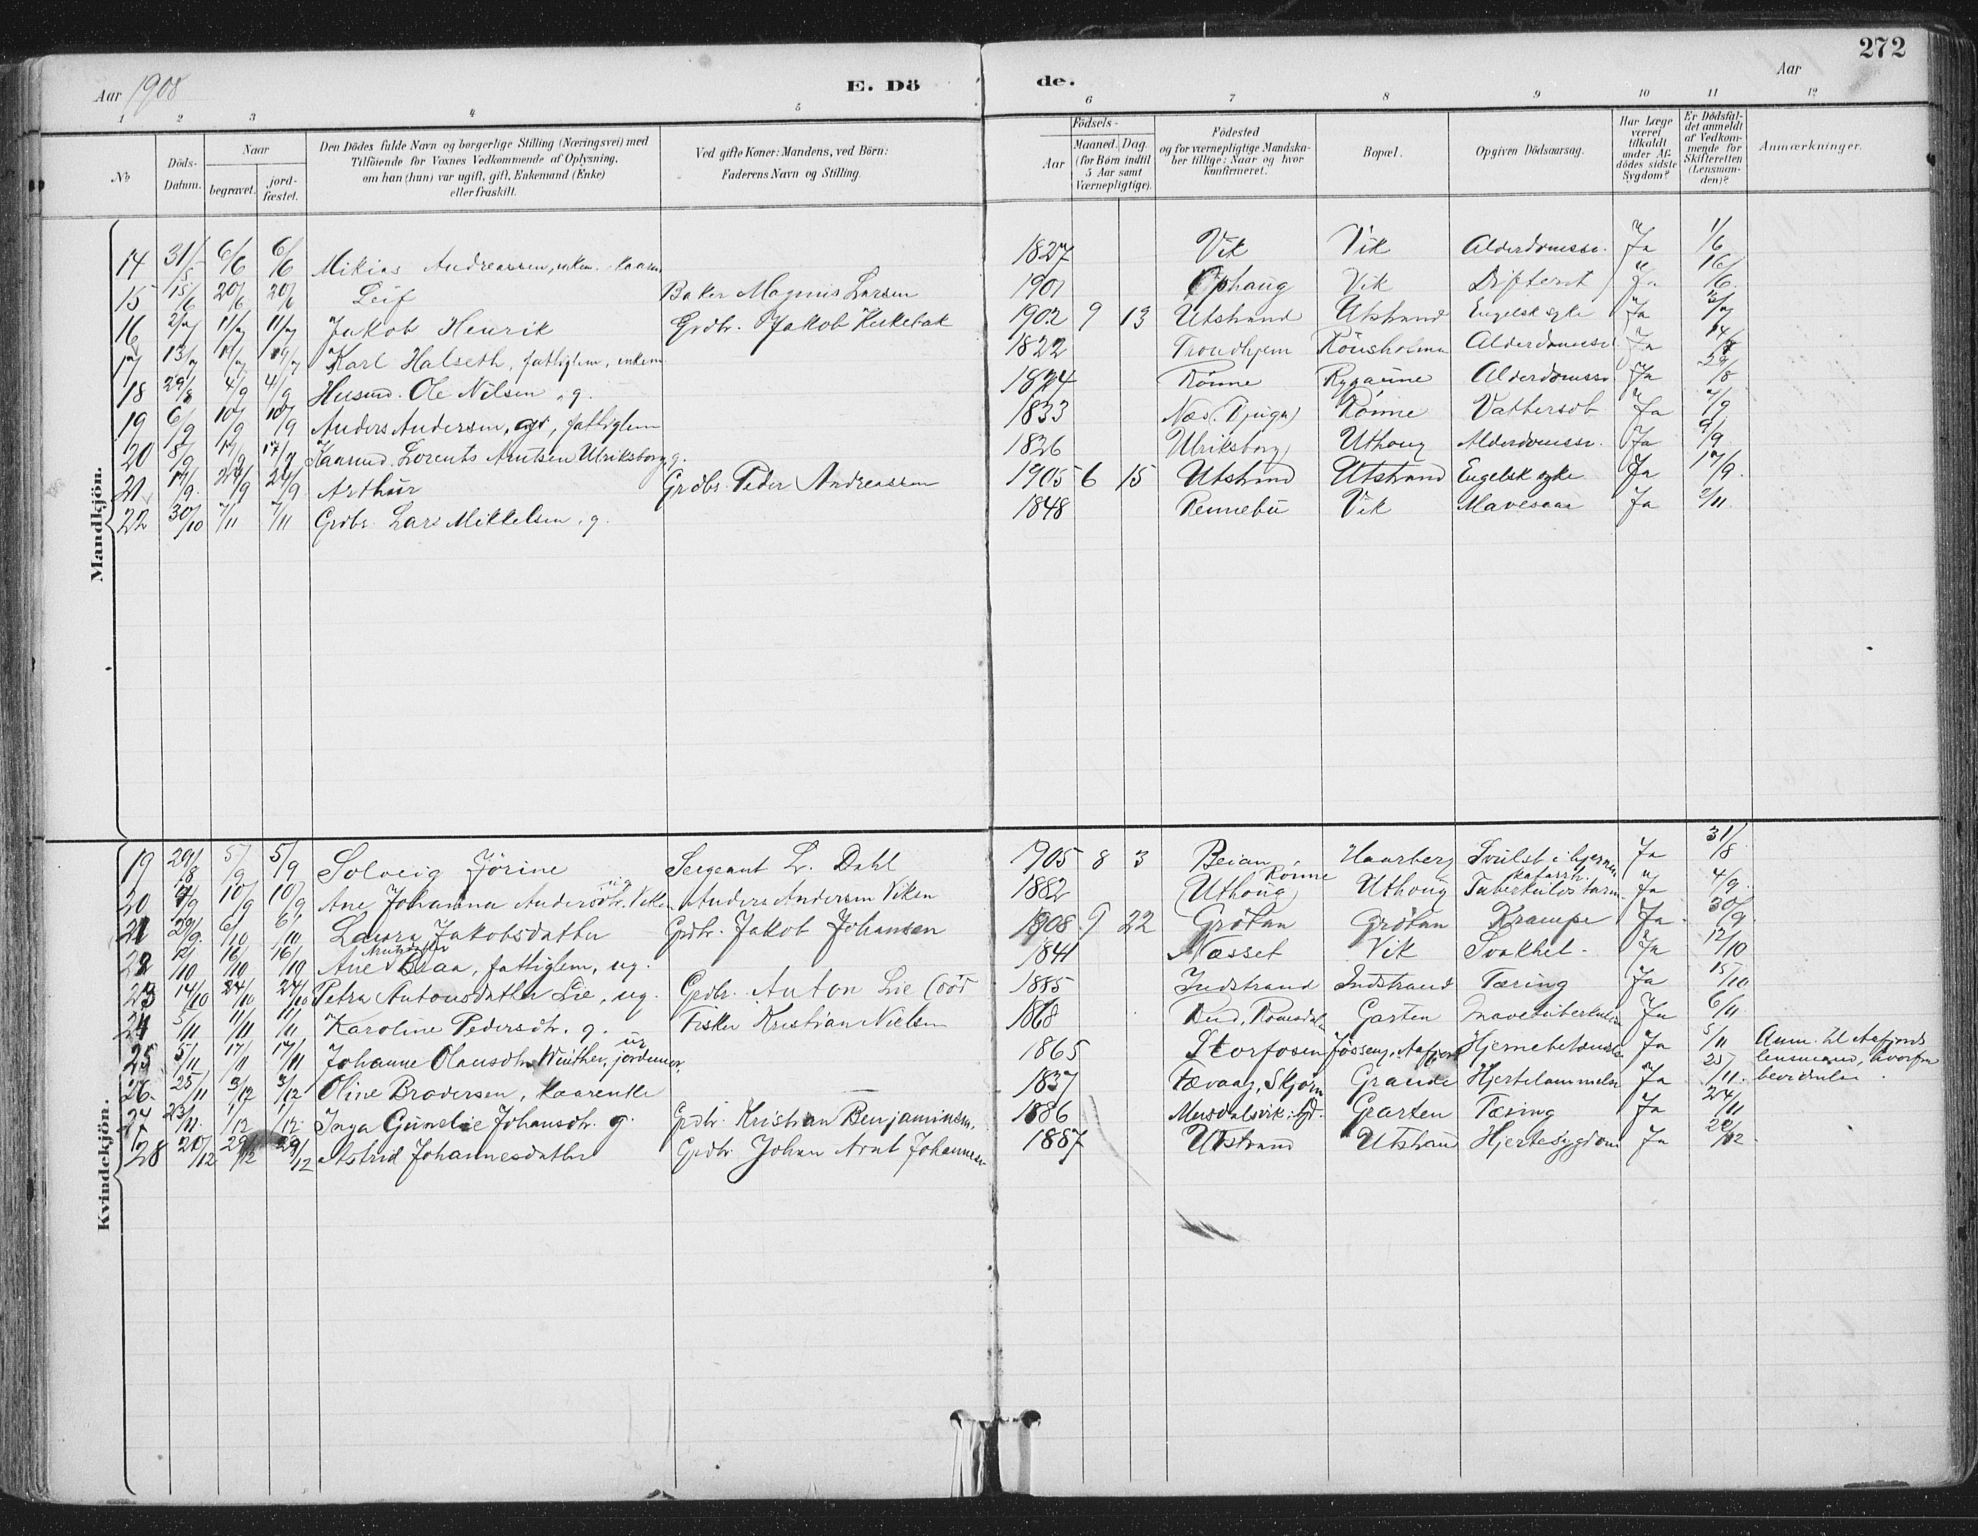 272
Aar 1908
E. Dö
de.
Aar
1 2 3 4 5 6 7 8 9 10 11 12
No
Döds-Datum.
Naar
begravet.
jord-fæstet.
Den Dödes fulde Navn og borgerlige Stilling (Næringsvei) med
Tilföiende for Voxnes Vedkommende af Oplysning,
om han (hun) var ugift, gift, Enkemand (Enke)
eller fraskilt.
Ved gifte Koner: Mandens, ved Börn:
Faderens Navn og Stilling.
Födsels-
Aar
Maaned. Dag.
(for Børn indtil
5 Aar samt
Værnepligtige).
Födested
og for værnepligtige Mandska-
ber tillige: Naar og hvor
konfirmeret.
Bopæl.
Opgiven Dödsaarsag.
Har Læge
været
tilkaldt
under Af-
dödes sidste
Sygdom?
Er Dödsfal-
det anmeldt
af Vedkom-
mende for
Skifteretten
(Lensman-
den)?
Anmærkninger.
Mandkjön.
14 31/5 6/6 6/6 Mikias Andreassen, enkem. 1827 Vik Vik Alderdomssv. Ja 1/6
15 15/6 20/6 20/6 Leif Baker Magnus Larsen 1901 Ophaug Vik Difterit Ja 16/6
16 2/7 11/7 11/7 Jakob Henrik Grdbr. Jakob 1902 9 13 Utstrand Utstrand Engelsk syke Ja
17 13/7 Karl Halseth, fattiglem, enkem 1822 Trondhjem Alderdomssv. Ja
18 29/8 4/9 4/9 Husmd. Ole Nilsen, g. 1824 Rönne Alderdomssv. Ja
19 6/9 10/9 10/9 Anders Andersen, fattiglem 1833 Næs Rönne Vattersot Ja 7/9
20 8/9 17/9 Lorents Arntsen Ulriksborg, g. 1826 Ulriksborg Uthoug Alderdomssv. Ja 9/9
21 14/9 24/9 24/9 Arthur Grdbr. Peder Andreassen 1905 6 15 Utstrand Utstrand Engelsk syke Ja 17/9
22 30/10 7/11 7/11 Grdbr. Lars Mikkelsen, g. 1848 Rennebu Vik Mavesaar Ja 2/11
Kvindekjön.
19 29/8 5/9 5/9 Solveig Jörine Sergeant L. Dahl 1905 8 3 Beian Haarberg Svulst i hjernen Ja 31/8
20 10/9 10/9 Ane Johanna Andersdtr. Viken Anders Andersen Viken 1882 Rönne (Uthoug) Uthoug Ja 4/9
21 29/9 6/10 6/10 Laura Jakobsdatter Grdbr. Jakob Johansen 1908 9 22 Grötan Grötan Krampe Ja 30/9
22 16/10 16/10 Ane Braa, fattiglem, ug. 1841 Næsset Vik Svakhet Ja 12/10
23 14/10 24/10 24/10 Petra Antonsdatter Lie, ug. Grdbr. Anton Lie 1885 Indstrand Indstrand Tæring Ja 15/10
24 5/11 11/11 11/11 Karoline Pedersdtr. g. Fisker Kristian Nielsen 1868 Garten Ja 6/11
25 5/11 17/11 17/11 Johanne Olausdtr. Winther, jordemor, ug 1865 Storfosen Ja 5/11 Anm. til Aafjords
26 25/11 3/12 3/12 Oline Brodersen, kaarenke 1837 Skjörn Grande Ja 25/11
27 23/11 1/12 1/12 Johansdtr. g. Grdbr. Kristian Benjaminsen. 1886 Garten Tæring Ja 24/11
28 20/12 29/12 29/12 Astrid Johannesdatter Grdbr Johan Arnt Johannesen 1887 Utstrand Utstrand Hjertesygdom Ja 22/12